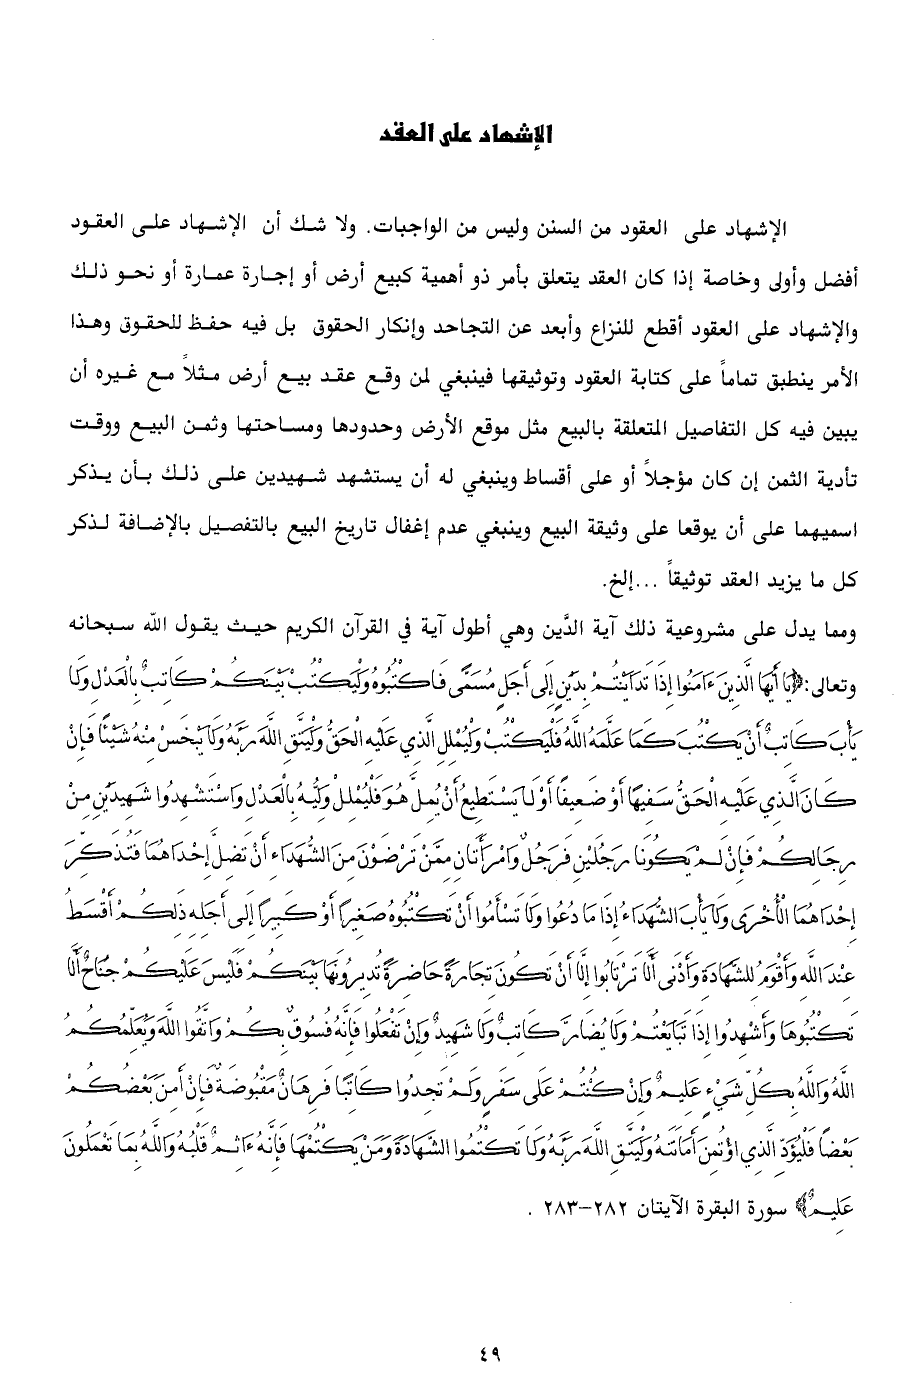 الإشهاد على العقد
الإشهاد على العقود من السنن وليس من الواجبات. ولا شك أن الإشهاد على العقود
أفضل وأولى وخاصة إذا كان العقد يتعلق بأمر ذو أهمية كبيع أرض أو إجارة عمارة أو نحو ذلك
والإشهاد على العقود أقطع للنزاع وأبعد عن التجاحد وإنكار الحقوق بل فيه حفظ للحقوق وهذا
الأمر ينطبق تماماً على كتابة العقود وتوثيقها فينبغي لمن وقع عقد بيع أرض مثلاً مع غيره أن
يبين فيه كل التفاصيل المتعلقة بالبيع مثل موقع الأرض وحدودها ومساحتها وثمن البيع ووقت
تأدية الثمن إن كان مؤجلاً أو على أقساط وينبغي له أن يستشهد شهيدين على ذلك بأن يذكر
اسميهما على أن يوقعا على وثيقة البيع وينبغي عدم إغفال تاريخ البيع بالتفصيل بالإضافة لذكر
كل ما يزيد العقد توثيقاً ...إلخ.
ومما يدل على مشروعية ذلك آية الدَّين وهي أطول آية في القرآن الكريم حيث يقول الله سبحانه
وتعالى:﴿يَا أَيُّهَا الَّذِينَ ءَامَنُوا إِذَا تَدَايَنْتُمْ بِدَيْنٍ إِلَى أَجَلٍ مُسَمًّى فَاكْتُبُوهُ وَلْيَكْتُبْ بَيْنَكُمْ كَاتِبٌ بِالْعَدْلِ وَلَا
يَأْبَ كَاتِبٌ أَنْ يَكْتُبَ كَمَا عَلَّمَهُ اللَّهُ فَلْيَكْتُبْ وَلْيُمْلِلِ الَّذِي عَلَيْهِ الْحَقُّ وَلْيَتَّقِ اللَّهَ رَبَّهُ وَلَا يَبْخَسْ مِنْهُ شَيْئًا فَإِنْ
كَانَ الَّذِي عَلَيْهِ الْحَقُّ سَفِيهًا أَوْ ضَعِيفًا أَوْ لَا يَسْتَطِيعُ أَنْ يُمِلَّ هُوَ فَلْيُمْلِلْ وَلِيُّهُ بِالْعَدْلِ وَاسْتَشْهِدُوا شَهِيدَيْنِ مِنْ
رِجَالِكُمْ فَإِنْ لَمْ يَكُونَا رَجُلَيْنِ فَرَجُلٌ وَامْرَأَتَانِ مِمَّنْ تَرْضَوْنَ مِنَ الشُّهَدَاءِ أَنْ تَضِلَّ إِحْدَاهُمَا فَتُذَكِّرَ
إِحْدَاهُمَا الْأُخْرَى وَلَا يَأْبَ الشُّهَدَاءُ إِذَا مَا دُعُوا وَلَا تَسْأَمُوا أَنْ تَكْتُبُوهُ صَغِيرًا أَوْ كَبِيرًا إِلَى أَجَلِهِ ذَلِكُمْ أَقْسَطُ
عِنْدَ اللَّهِ وَأَقْوَمُ لِلشَّهَادَةِ وَأَدْنَى أَلَّا تَرْتَابُوا إِلَّا أَنْ تَكُونَ تِجَارَةً حَاضِرَةً تُدِيرُونَهَا بَيْنَكُمْ فَلَيْسَ عَلَيْكُمْ جُنَاحٌ أَلَّا
تَكْتُبُوهَا وَأَشْهِدُوا إِذَا تَبَايَعْتُمْ وَلَا يُضَارَّ كَاتِبٌ وَلَا شَهِيدٌ وَإِنْ تَفْعَلُوا فَإِنَّهُ فُسُوقٌ بِكُمْ وَاتَّقُوا اللَّهَ وَيُعَلِّمُكُمُ
اللَّهُ وَاللَّهُ بِكُلِّ شَيْءٍ عَلِيمٌ وَإِنْ كُنْتُمْ عَلَى سَفَرٍ وَلَمْ تَجِدُوا كَاتِبًا فَرِهَانٌ مَقْبُوضَةٌ فَإِنْ أَمِنَ بَعْضُكُمْ
بَعْضًا فَلْيُؤَدِّ الَّذِي اؤْتُمِنَ أَمَانَتَهُ وَلْيَتَّقِ اللَّهَ رَبَّهُ وَلَا تَكْتُمُوا الشَّهَادَةَ وَمَنْ يَكْتُمْهَا فَإِنَّهُ ءَاثِمٌ قَلْبُهُ وَاللَّهُ بِمَا تَعْمَلُونَ
عَلِيمٌ﴾ سورة البقرة الآيتان ٢٨٢-٢٨٣ .
٤٩